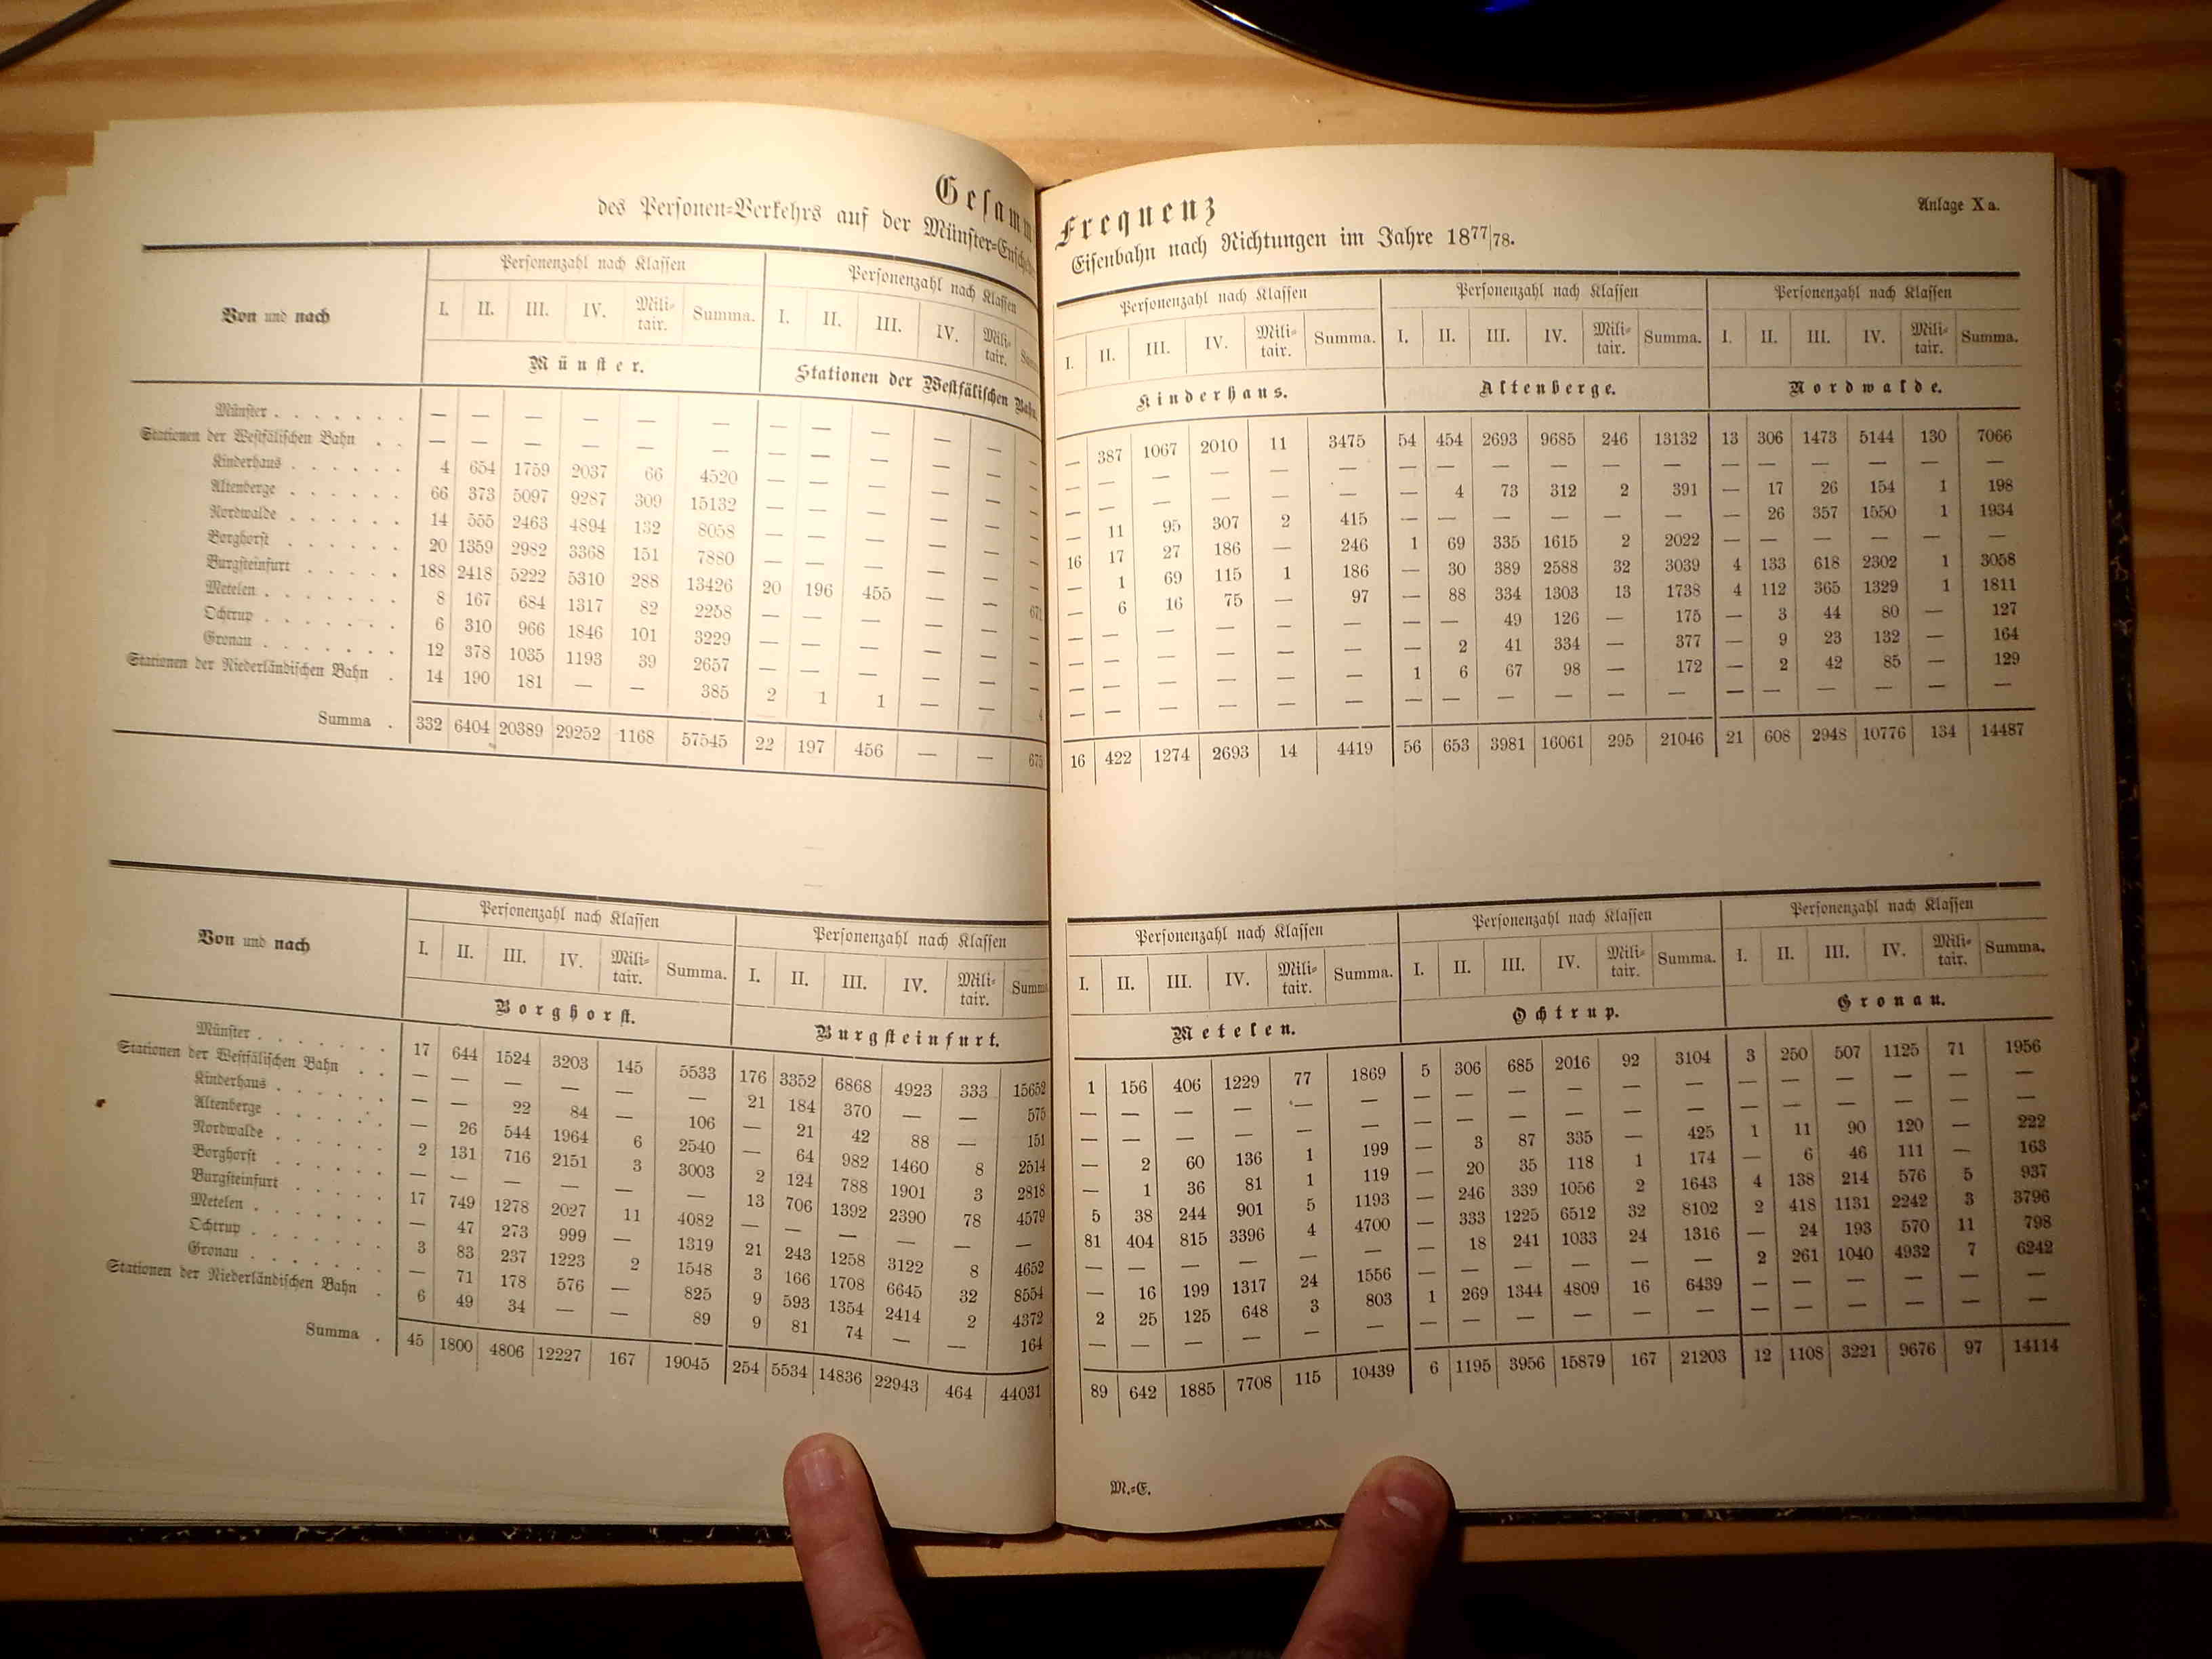 Gesamm Frequenz
Anlage X a.
des Personen-Verkehrs auf der Münster-Enschede Eisenbahn nach Richtungen im Jahre 18⁷⁷|₇₈.
Von und nach | Personenzahl nach Klassen | Personenzahl nach Klassen | Personenzahl nach Klassen | Personenzahl nach Klassen | Personenzahl nach Klassen
I. II. III. IV. Mili-tair. Summa. | I. II. III. IV. Mili-tair. | I. II. III. IV. Mili-tair. Summa. | I. II. III. IV. Mili-tair. Summa. | I. II. III. IV. Mili-tair. Summa.
Münster. | Stationen der Westfälischen Bahn. | Kinderhaus. | Altenberge. | Nordwalde.
Münster . . . . . . . — — — — — — | — — — — — — | — 387 1067 2010 11 3475 | 54 454 2693 9685 246 13132 | 13 306 1473 5144 130 7066
Stationen der Westfälischen Bahn . . — — — — — — | — — — — — — | — — — — — — | — — — — — — | — — — — — —
Kinderhaus . . . . . . 4 654 1759 2037 66 4520 | — — — — — — | — — — — — — | — 4 73 312 2 391 | — 17 26 154 1 198
Altenberge . . . . . . 66 373 5097 9287 309 15132 | — — — — — — | — 11 95 307 2 415 | — — — — — — | — 26 357 1550 1 1934
Nordwalde . . . . . . 14 555 2463 4894 132 8058 | — — — — — — | 16 17 27 186 — 246 | 1 69 335 1615 2 2022 | — — — — — —
Borghorst . . . . . . 20 1359 2982 3368 151 7880 | — — — — — — | — 1 69 115 1 186 | — 30 389 2588 32 3039 | 4 133 618 2302 1 3058
Burgsteinfurt . . . . . 188 2418 5222 5310 288 13426 | 20 196 455 — — 671 | — 6 16 75 — 97 | — 88 334 1303 13 1738 | 4 112 365 1329 1 1811
Metelen . . . . . . . 8 167 684 1317 82 2258 | — — — — — — | — — — — — — | — — 49 126 — 175 | — 3 44 80 — 127
Ochtrup . . . . . . . 6 310 966 1846 101 3229 | — — — — — — | — — — — — — | — 2 41 334 — 377 | — 9 23 132 — 164
Gronau . . . . . . . 12 378 1035 1193 39 2657 | — — — — — — | — — — — — — | 1 6 67 98 — 172 | — 2 42 85 — 129
Stationen der Niederländischen Bahn . 14 190 181 — — 385 | 2 1 1 — — 4 | — — — — — — | — — — — — — | — — — — — —
Summa . 332 6404 20389 29252 1168 57545 | 22 197 456 — — 675 | 16 422 1274 2693 14 4419 | 56 653 3981 16061 295 21046 | 21 608 2948 10776 134 14487
Von und nach | Personenzahl nach Klassen | Personenzahl nach Klassen | Personenzahl nach Klassen | Personenzahl nach Klassen | Personenzahl nach Klassen
I. II. III. IV. Mili-tair. Summa. | I. II. III. IV. Mili-tair. Summa | I. II. III. IV. Mili-tair. Summa. | I. II. III. IV. Mili-tair. Summa. | I. II. III. IV. Mili-tair. Summa.
Borghorst. | Burgsteinfurt. | Metelen. | Ochtrup. | Gronau.
Münster . . . . . . . 17 644 1524 3203 145 5533 | 176 3352 6868 4923 333 15652 | 1 156 406 1229 77 1869 | 5 306 685 2016 92 3104 | 3 250 507 1125 71 1956
Stationen der Westfälischen Bahn . . — — — — — — | 21 184 370 — — 575 | — — — — — — | — — — — — — | — — — — — —
Kinderhaus . . . . . . — — 22 84 — 106 | — 21 42 88 — 151 | — — — — — — | — — — — — — | — — — — — —
Altenberge . . . . . . — 26 544 1964 6 2540 | — 64 982 1460 8 2514 | — 2 60 136 1 199 | — 3 87 335 — 425 | 1 11 90 120 — 222
Nordwalde . . . . . . 2 131 716 2151 3 3003 | 2 124 788 1901 3 2818 | — 1 36 81 1 119 | — 20 35 118 1 174 | — 6 46 111 — 163
Borghorst . . . . . . — — — — — — | 13 706 1392 2390 78 4579 | 5 38 244 901 5 1193 | — 246 339 1056 2 1643 | 4 138 214 576 5 937
Burgsteinfurt . . . . . 17 749 1278 2027 11 4082 | — — — — — — | 81 404 815 3396 4 4700 | — 333 1225 6512 32 8102 | 2 418 1131 2242 3 3796
Metelen . . . . . . . — 47 273 999 — 1319 | 21 243 1258 3122 8 4652 | — — — — — — | — 18 241 1033 24 1316 | — 24 193 570 11 798
Ochtrup . . . . . . . 3 83 237 1223 2 1548 | 3 166 1708 6645 32 8554 | — 16 199 1317 24 1556 | — — — — — — | 2 261 1040 4932 7 6242
Gronau . . . . . . . — 71 178 576 — 825 | 9 593 1354 2414 2 4372 | 2 25 125 648 3 803 | 1 269 1344 4809 16 6439 | — — — — — —
Stationen der Niederländischen Bahn . 6 49 34 — — 89 | 9 81 74 — — 164 | — — — — — — | — — — — — — | — — — — — —
Summa . 45 1800 4806 12227 167 19045 | 254 5534 14836 22943 464 44031 | 89 642 1885 7708 115 10439 | 6 1195 3956 15879 167 21203 | 12 1108 3221 9676 97 14114
M.-E.